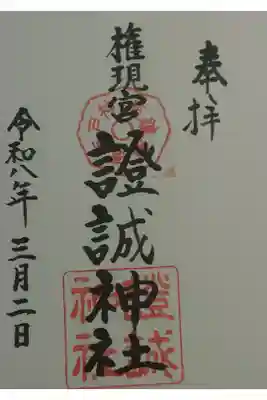 奉拝
権現宮
證誠神社
令和八年三月二日
證誠
神社